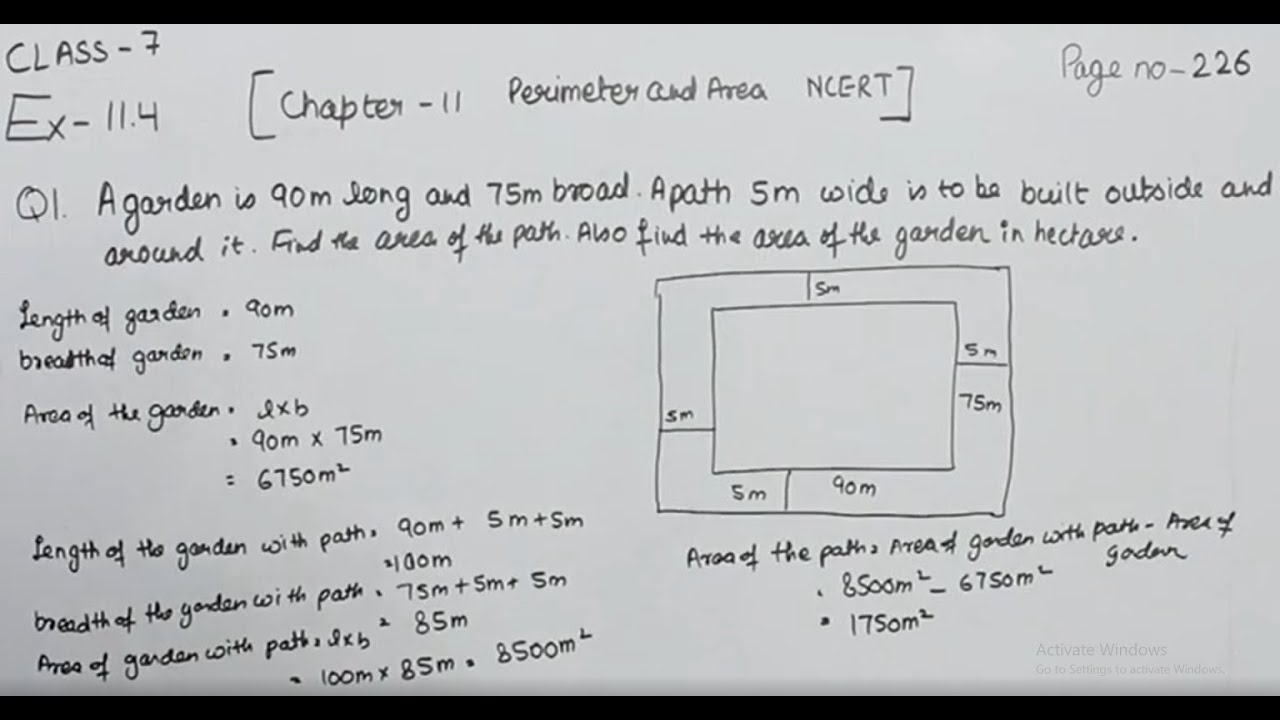 CLASS - 7
Ex - 11.4
[Chapter - 11 Perimeter and Area NCERT]
Page no - 226
Q1. A garden is 90m long and 75m broad. A path 5m wide is to be built outside and
around it. Find the area of the path. Also find the area of the garden in hectare.
Length of garden = 90m
breadth of garden = 75m
Area of the garden = l×b
= 90m × 75m
= 6750m²
Length of the garden with path = 90m + 5m + 5m
= 100m
breadth of the garden with path = 75m + 5m + 5m
= 85m
Area of garden with path = l×b
= 100m × 85m = 8500m²
5m
5m
75m
5m
5m
90m
Area of the path = Area of garden with path - Area of
garden
= 8500m² - 6750m²
= 1750m²
Activate Windows
Go to Settings to activate Windows.